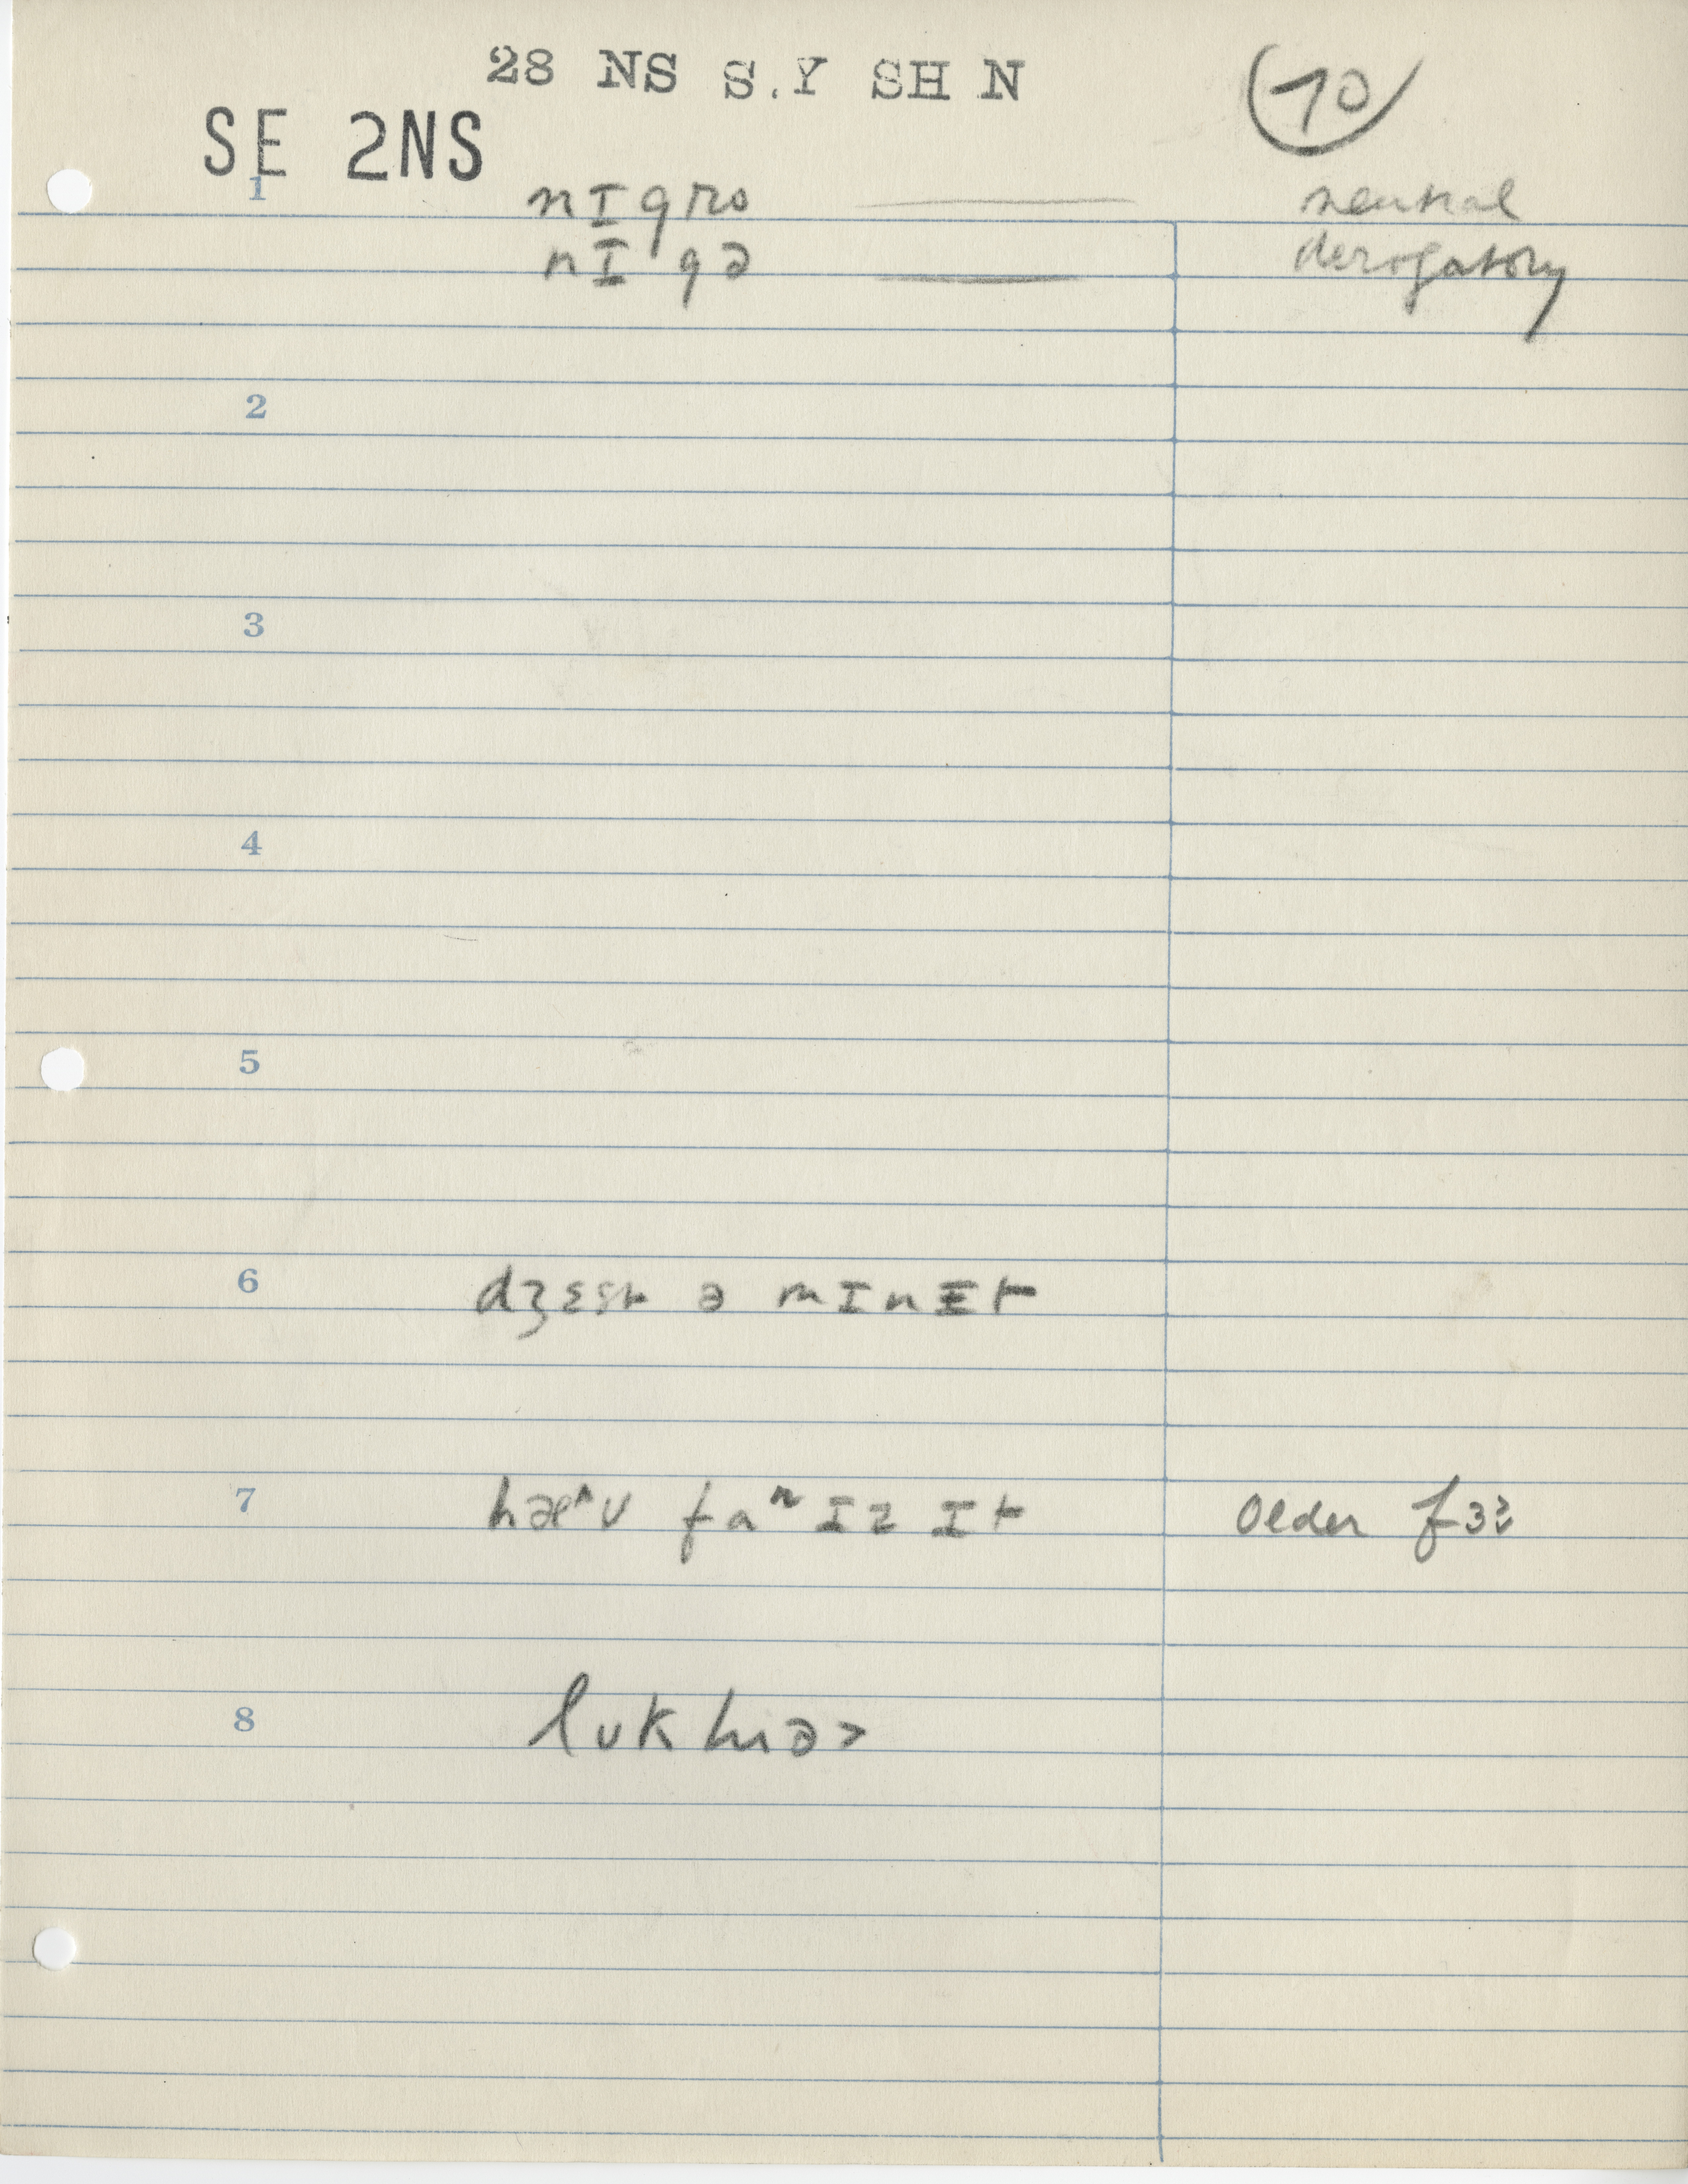 28 NS S.Y SH N
70
SE 2NS
1 nIgro neutral
nIgə derogatory
2
3
4
5
6 dʒɛst ə mInɪt
7 hæ^v faʳ Iz It older
8 lʊk hiə>